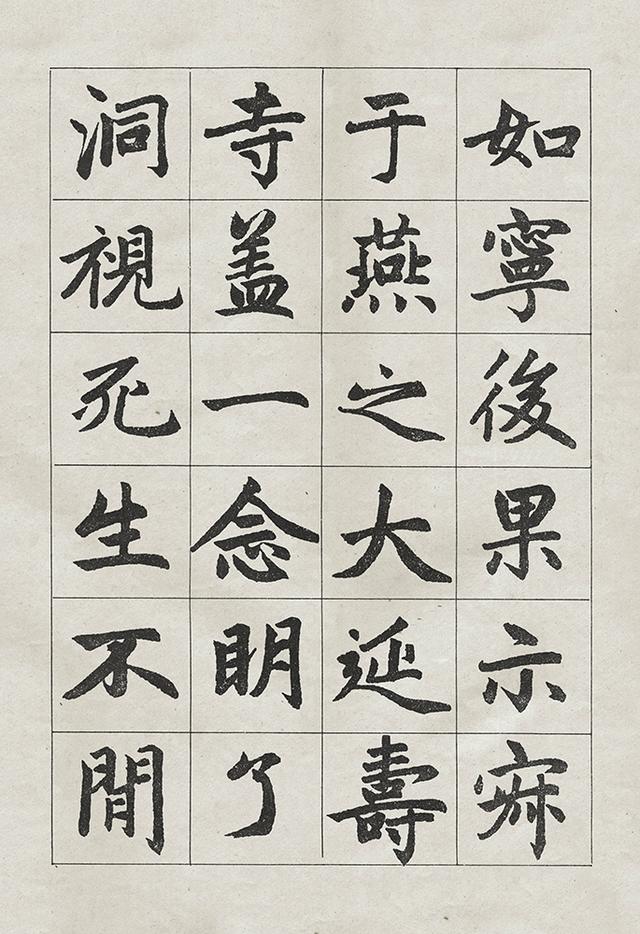 如寧後果示寂
于燕之大延壽
寺盖一念明了
洞視死生不間